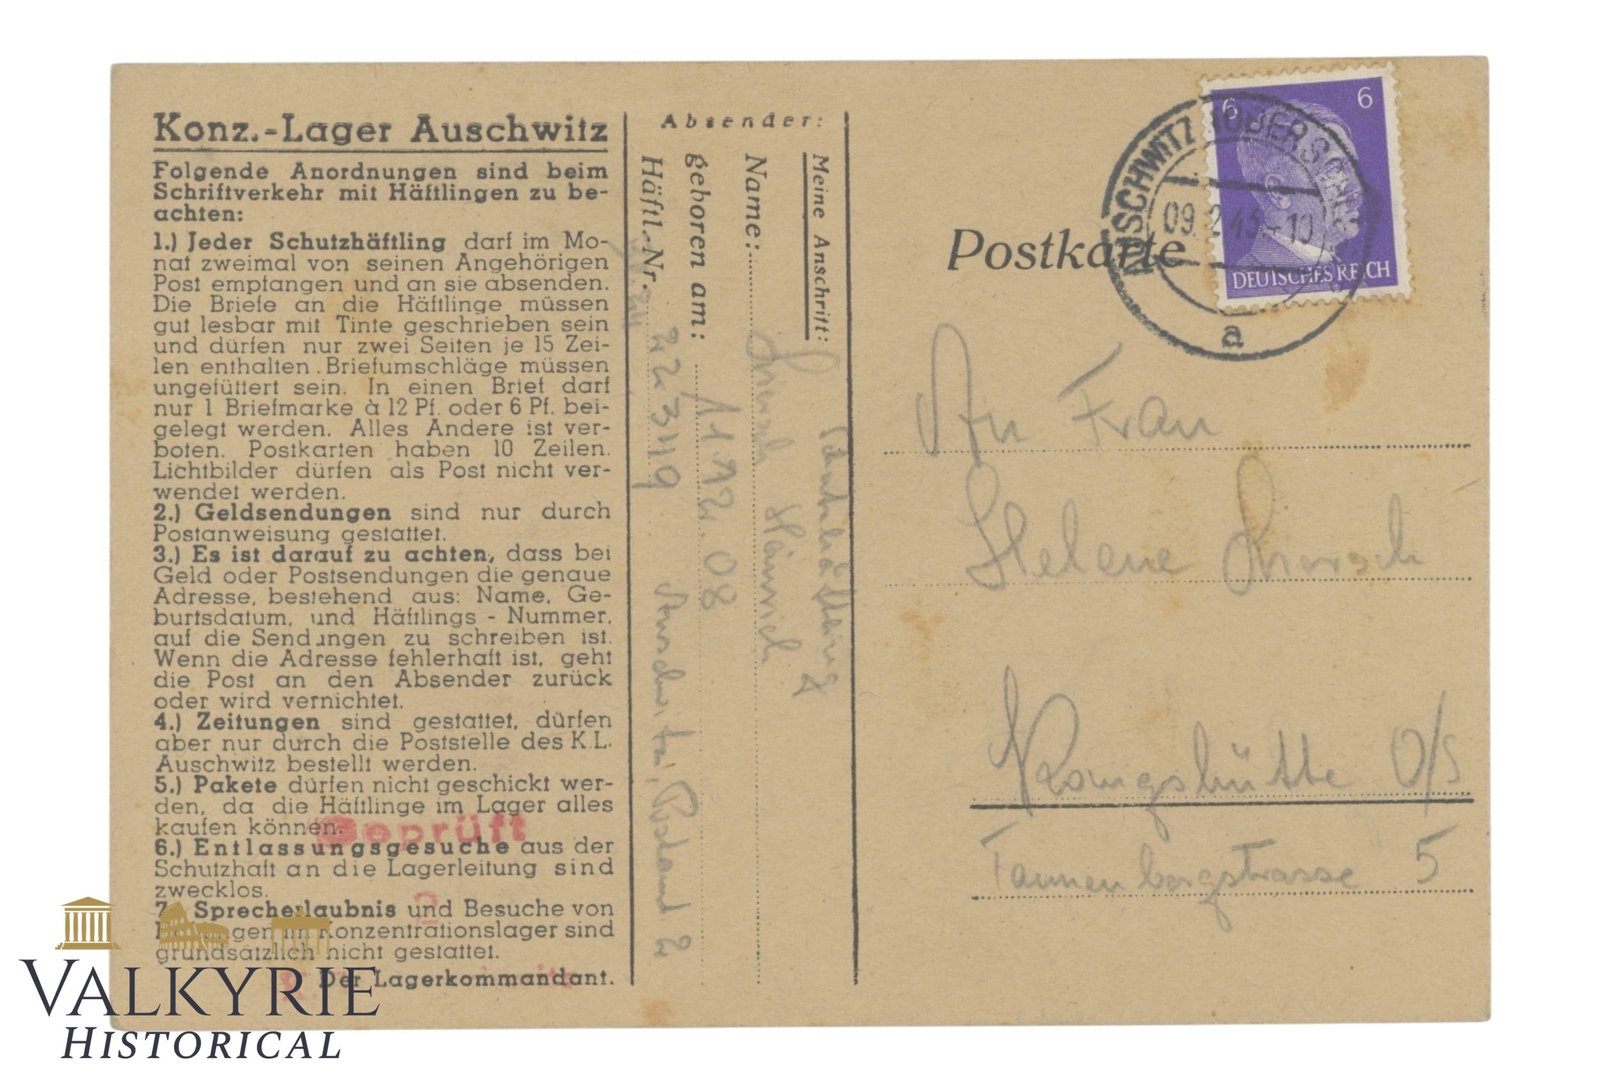 Konz.-Lager Auschwitz
Folgende Anordnungen sind beim
Schriftverkehr mit Häftlingen zu be-
achten:
1.) Jeder Schutzhäftling darf im Mo-
nat zweimal von seinen Angehörigen
Post empfangen und an sie absenden.
Die Briefe an die Häftlinge müssen
gut lesbar mit Tinte geschrieben sein
und dürfen nur zwei Seiten je 15 Zei-
len enthalten. Briefumschläge müssen
ungefüttert sein. In einen Brief darf
nur 1 Briefmarke à 12 Pf. oder 6 Pf. bei-
gelegt werden. Alles Andere ist ver-
boten. Postkarten haben 10 Zeilen.
Lichtbilder dürfen als Post nicht ver-
wendet werden.
2.) Geldsendungen sind nur durch
Postanweisung gestattet.
3.) Es ist darauf zu achten, dass bei
Geld oder Postsendungen die genaue
Adresse, bestehend aus: Name, Ge-
burtsdatum, und Häftlings - Nummer,
auf die Sendungen zu schreiben ist.
Wenn die Adresse fehlerhaft ist, geht
die Post an den Absender zurück
oder wird vernichtet.
4.) Zeitungen sind gestattet, dürfen
aber nur durch die Poststelle des K.L.
Auschwitz bestellt werden.
5.) Pakete dürfen nicht geschickt wer-
den, da die Häftlinge im Lager alles
kaufen können.
6.) Entlassungsgesuche aus der
Schutzhaft an die Lagerleitung sind
zwecklos.
7.) Sprecherlaubnis und Besuche von
im Konzentrationslager sind
grundsätzlich nicht gestattet.
Der Lagerkommandant.
Geprüft
2
Absender:
Meine Anschrift:
Name: Heinrich
geboren am: 11.12.08
Häftl.-Nr. Auschwitz, Postamt 2
Postkarte
AUSCHWITZ
a
6
6
DEUTSCHES REICH
An Frau
Helene
Königshütte O/S
Tannenbergstrasse 5
VALKYRIE
HISTORICAL